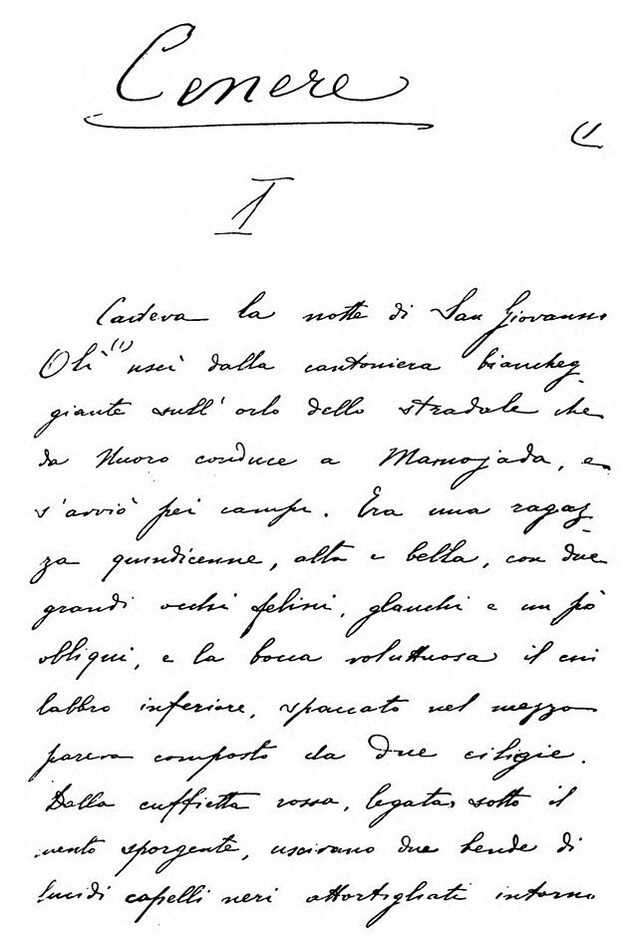 Cenere
(1
I
Cadeva la notte di San Giovanni
Olì (1) uscì dalla cantoniera biancheg-
giante sull'orlo dello stradale che
da Nuoro conduce a Mamojada, e
s'avviò pei campi. Era una ragaz-
za quindicenne, alta e bella, con due
grandi occhi felini, glauchi e un pò
obliqui, e la bocca voluttuosa il cui
labbro inferiore, spaccato nel mezzo
pareva composto da due ciligie.
Dalla cuffietta rossa, legata sotto il
mento sporgente, uscivano due bende di
lucidi capelli neri attortigliati intorno